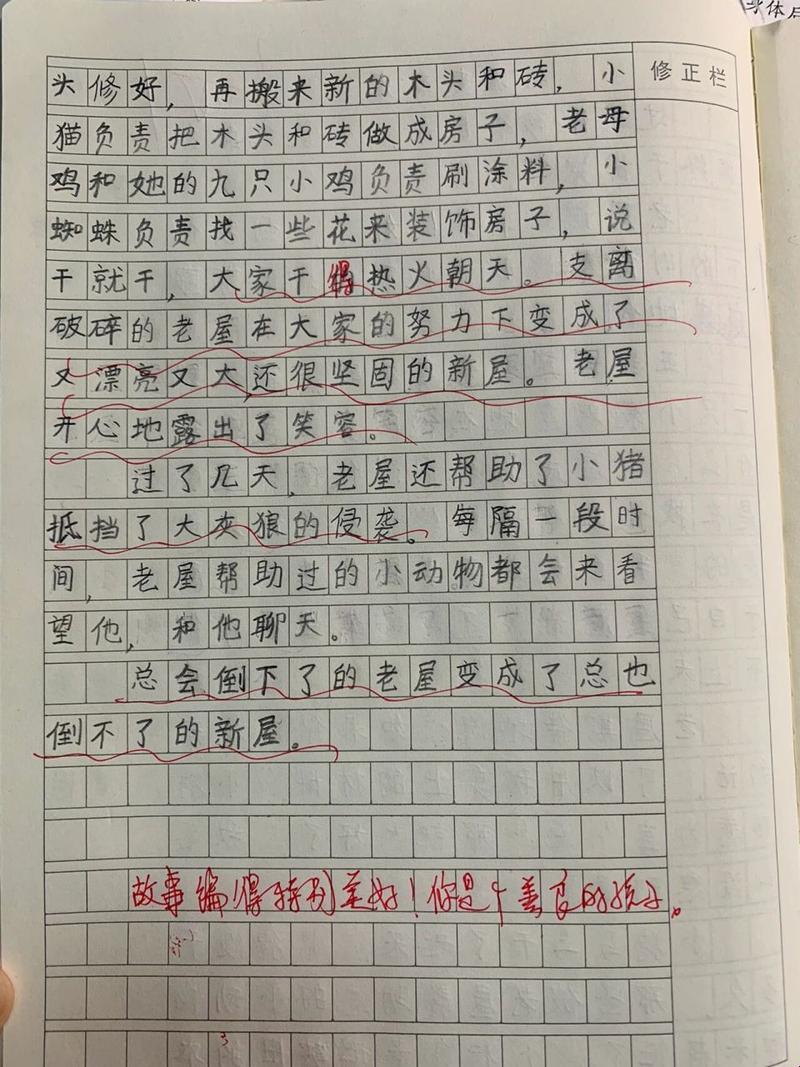 身体
修正栏
头修好，再搬来新的木头和砖，小
猫负责把木头和砖做成房子，老母
鸡和她的九只小鸡负责刷涂料，小
蜘蛛负责找一些花来装饰房子，说
干就干，大家干得热火朝天。支离
破碎的老屋在大家的努力下变成了
又漂亮又大，还很坚固的新屋。老屋
开心地露出了笑容。
过了几天，老屋还帮助了小猪
抵挡了大灰狼的侵袭。每隔一段时
间，老屋帮助过的小动物都会来看
望他，和他聊天。
总会倒下了的老屋变成了总也
倒不了的新屋。
故事编得特别美好！你是个善良的孩子。